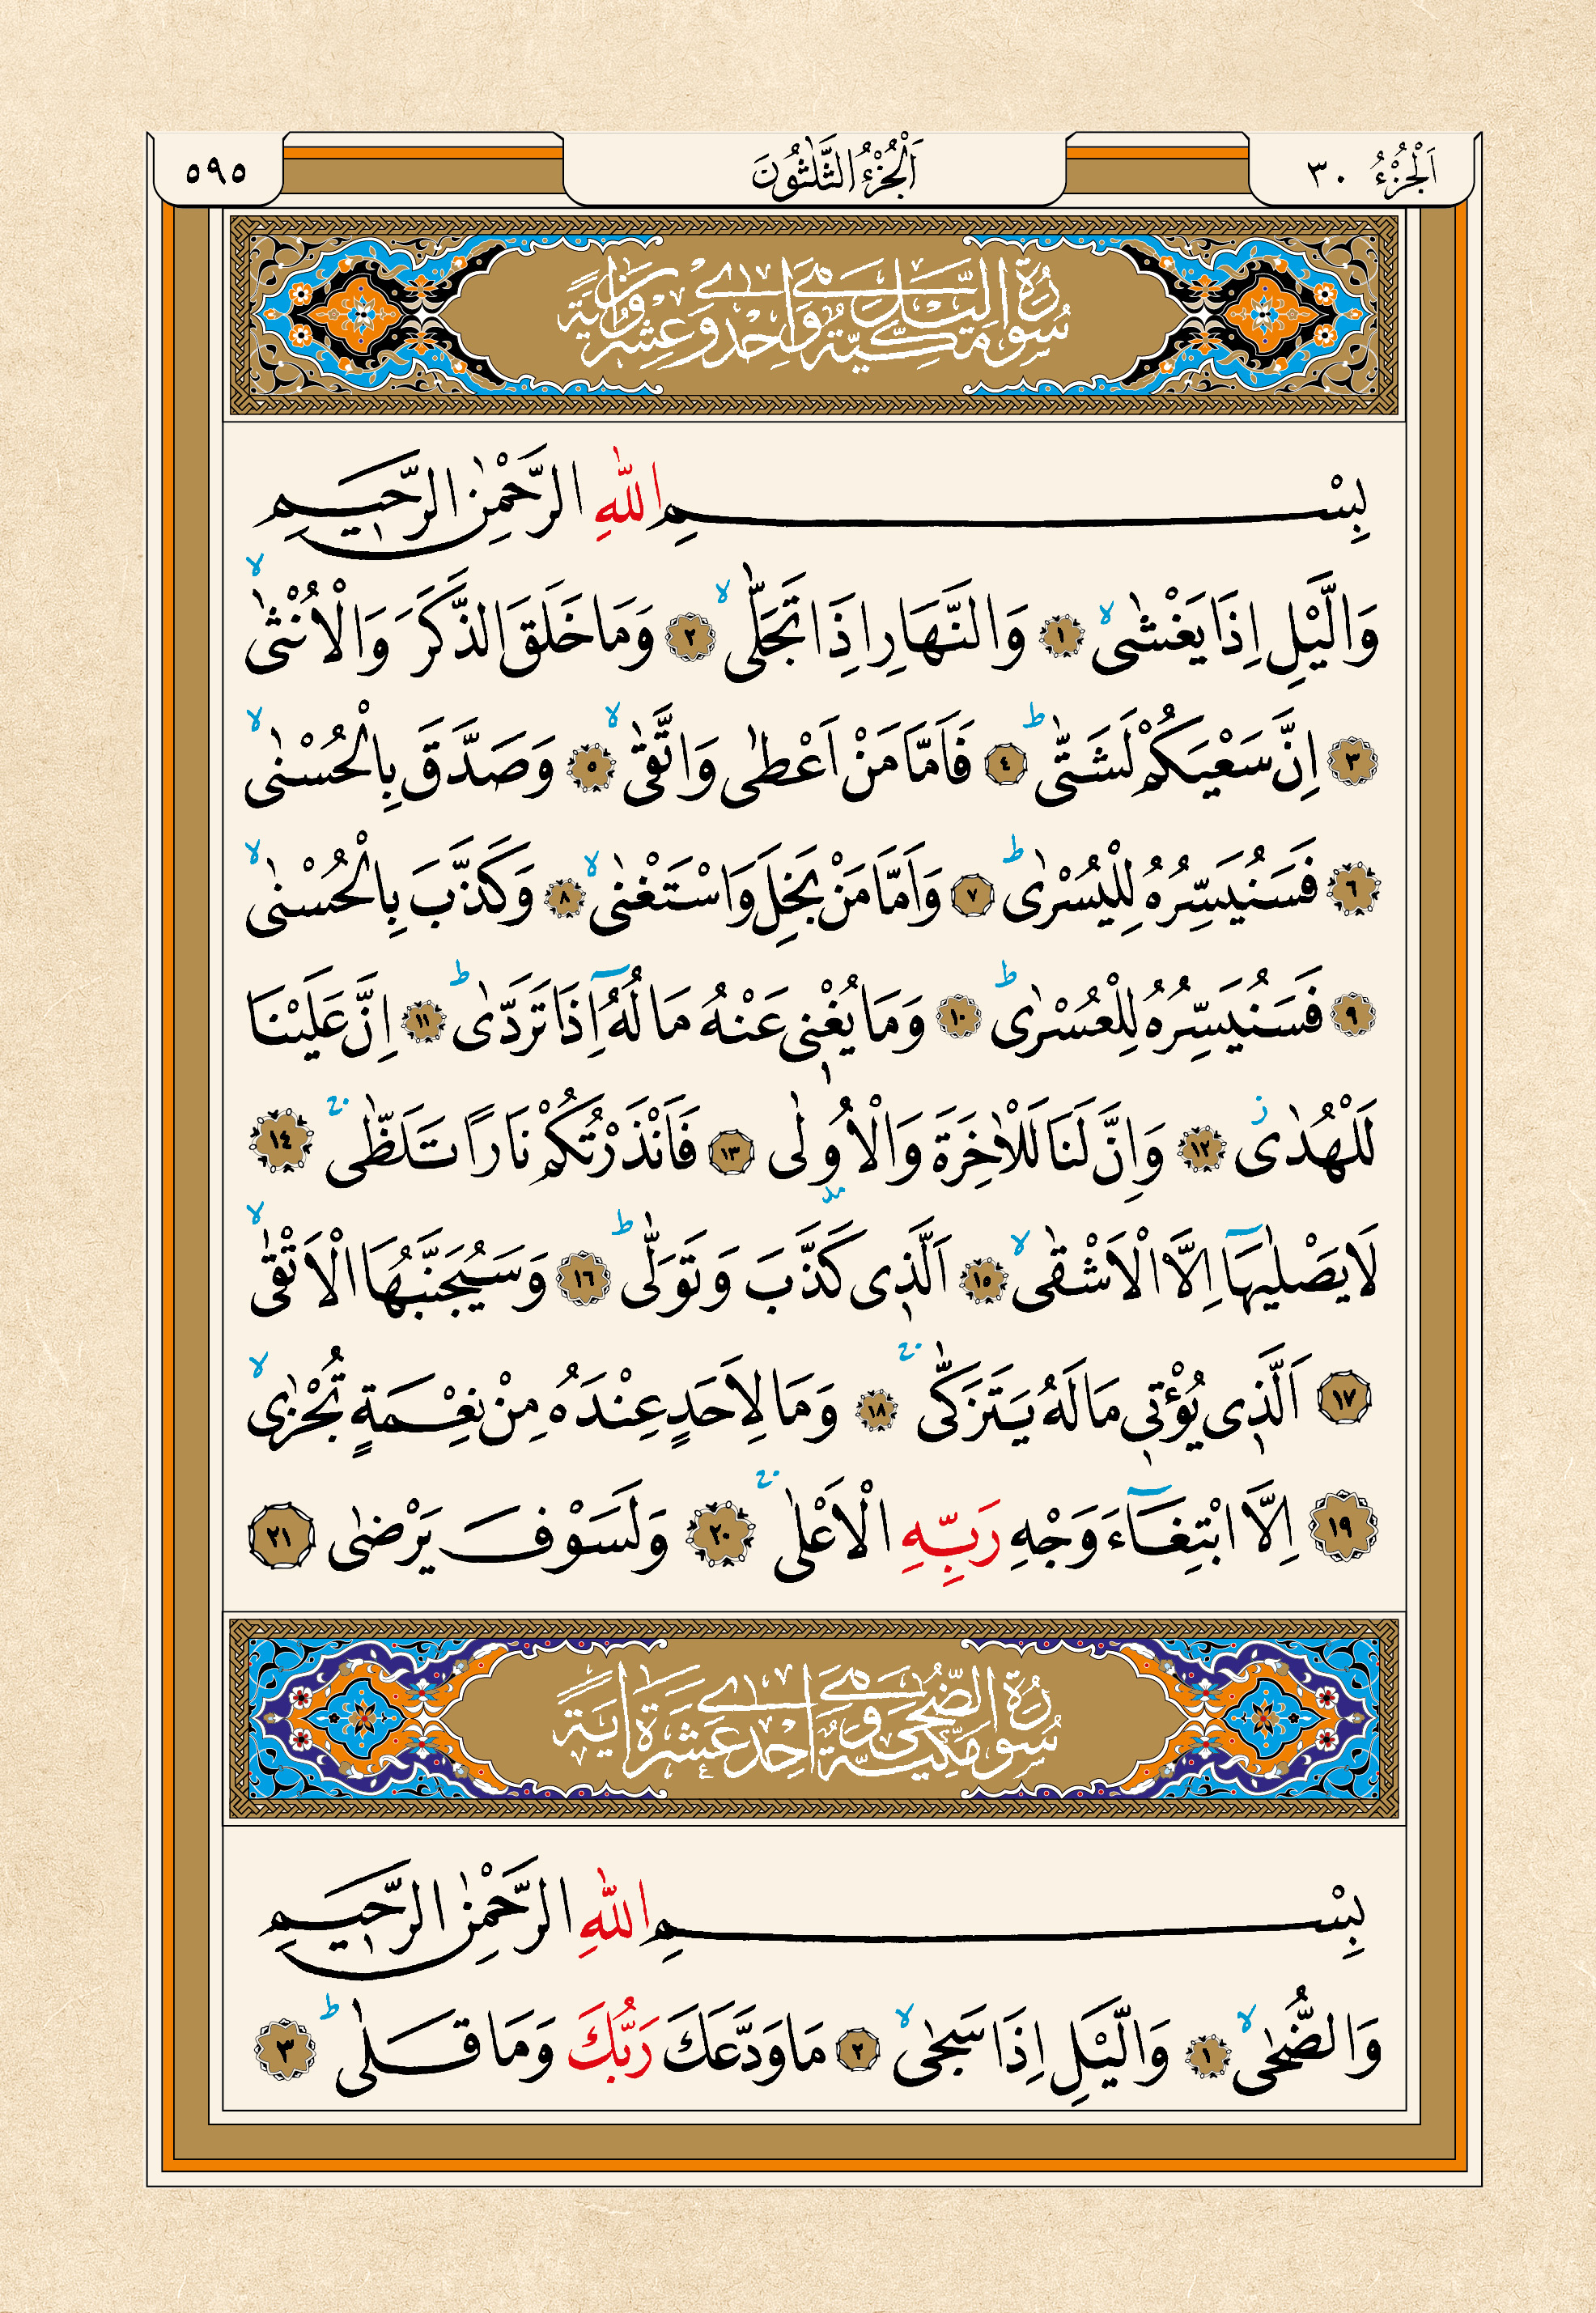 اَلْجُزْءُ ٣٠
اَلْجُزْءُ الثَّلٰثُونَ
٥٩٥
سُورَةُ الَّيْلِ مَكِّيَّةٌ وَهِيَ اِحْدٰى وَعِشْرُونَ اٰيَةً
بِسْمِ اللّٰهِ الرَّحْمٰنِ الرَّحٖيمِ
وَالَّيْلِ اِذَا يَغْشٰىۙ ١ وَالنَّهَارِ اِذَا تَجَلّٰىۙ ٢ وَمَا خَلَقَ الذَّكَرَ وَالْاُنْثٰىۙ
٣ اِنَّ سَعْيَكُمْ لَشَتّٰىؕ ٤ فَاَمَّا مَنْ اَعْطٰى وَاتَّقٰىۙ ٥ وَصَدَّقَ بِالْحُسْنٰىۙ
٦ فَسَنُيَسِّرُهُ لِلْيُسْرٰىؕ ٧ وَاَمَّا مَنْ بَخِلَ وَاسْتَغْنٰىۙ ٨ وَكَذَّبَ بِالْحُسْنٰىۙ
٩ فَسَنُيَسِّرُهُ لِلْعُسْرٰىؕ ١٠ وَمَا يُغْنٖي عَنْهُ مَالُهُٓ اِذَا تَرَدّٰىؕ ١١ اِنَّ عَلَيْنَا
لَلْهُدٰىؗ ١٢ وَاِنَّ لَنَا لَلْاٰخِرَةَ وَالْاُو۫لٰى ١٣ فَاَنْذَرْتُكُمْ نَارًا تَلَظّٰىۚ ١٤
لَا يَصْلٰيهَٓا اِلَّا الْاَشْقٰىۙ ١٥ اَلَّذٖي كَذَّبَ وَتَوَلّٰىؕ ١٦ وَسَيُجَنَّبُهَا الْاَتْقٰىۙ
١٧ اَلَّذٖي يُؤْتٖي مَالَهُ يَتَزَكّٰىۚ ١٨ وَمَا لِاَحَدٍ عِنْدَهُ مِنْ نِعْمَةٍ تُجْزٰىۙ
١٩ اِلَّا ابْتِغَٓاءَ وَجْهِ رَبِّهِ الْاَعْلٰىۚ ٢٠ وَلَسَوْفَ يَرْضٰى ٢١
سُورَةُ الضُّحٰى مَكِّيَّةٌ وَهِيَ اِحْدٰى عَشْرَةَ اٰيَةً
بِسْمِ اللّٰهِ الرَّحْمٰنِ الرَّحٖيمِ
وَالضُّحٰىۙ ١ وَالَّيْلِ اِذَا سَجٰىۙ ٢ مَا وَدَّعَكَ رَبُّكَ وَمَا قَلٰىؕ ٣